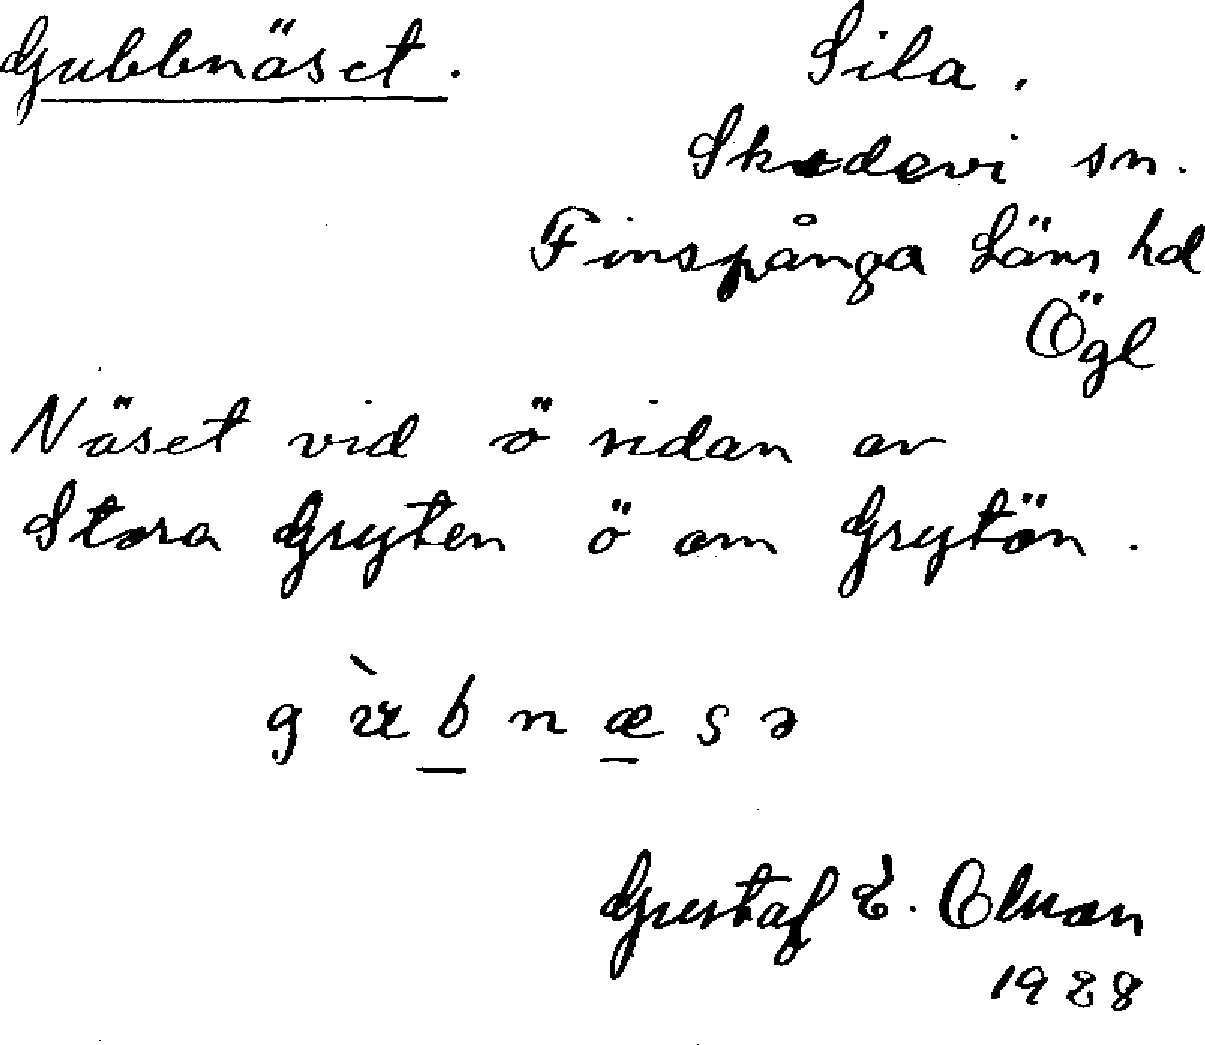 Gubbnäset. Sila.
Skedevi sn.
Finspånga läns hd
Ögl
Näset vid ö sidan av
Stora Gryten ö om Grytön.
Gustaf E. Olsson
1928